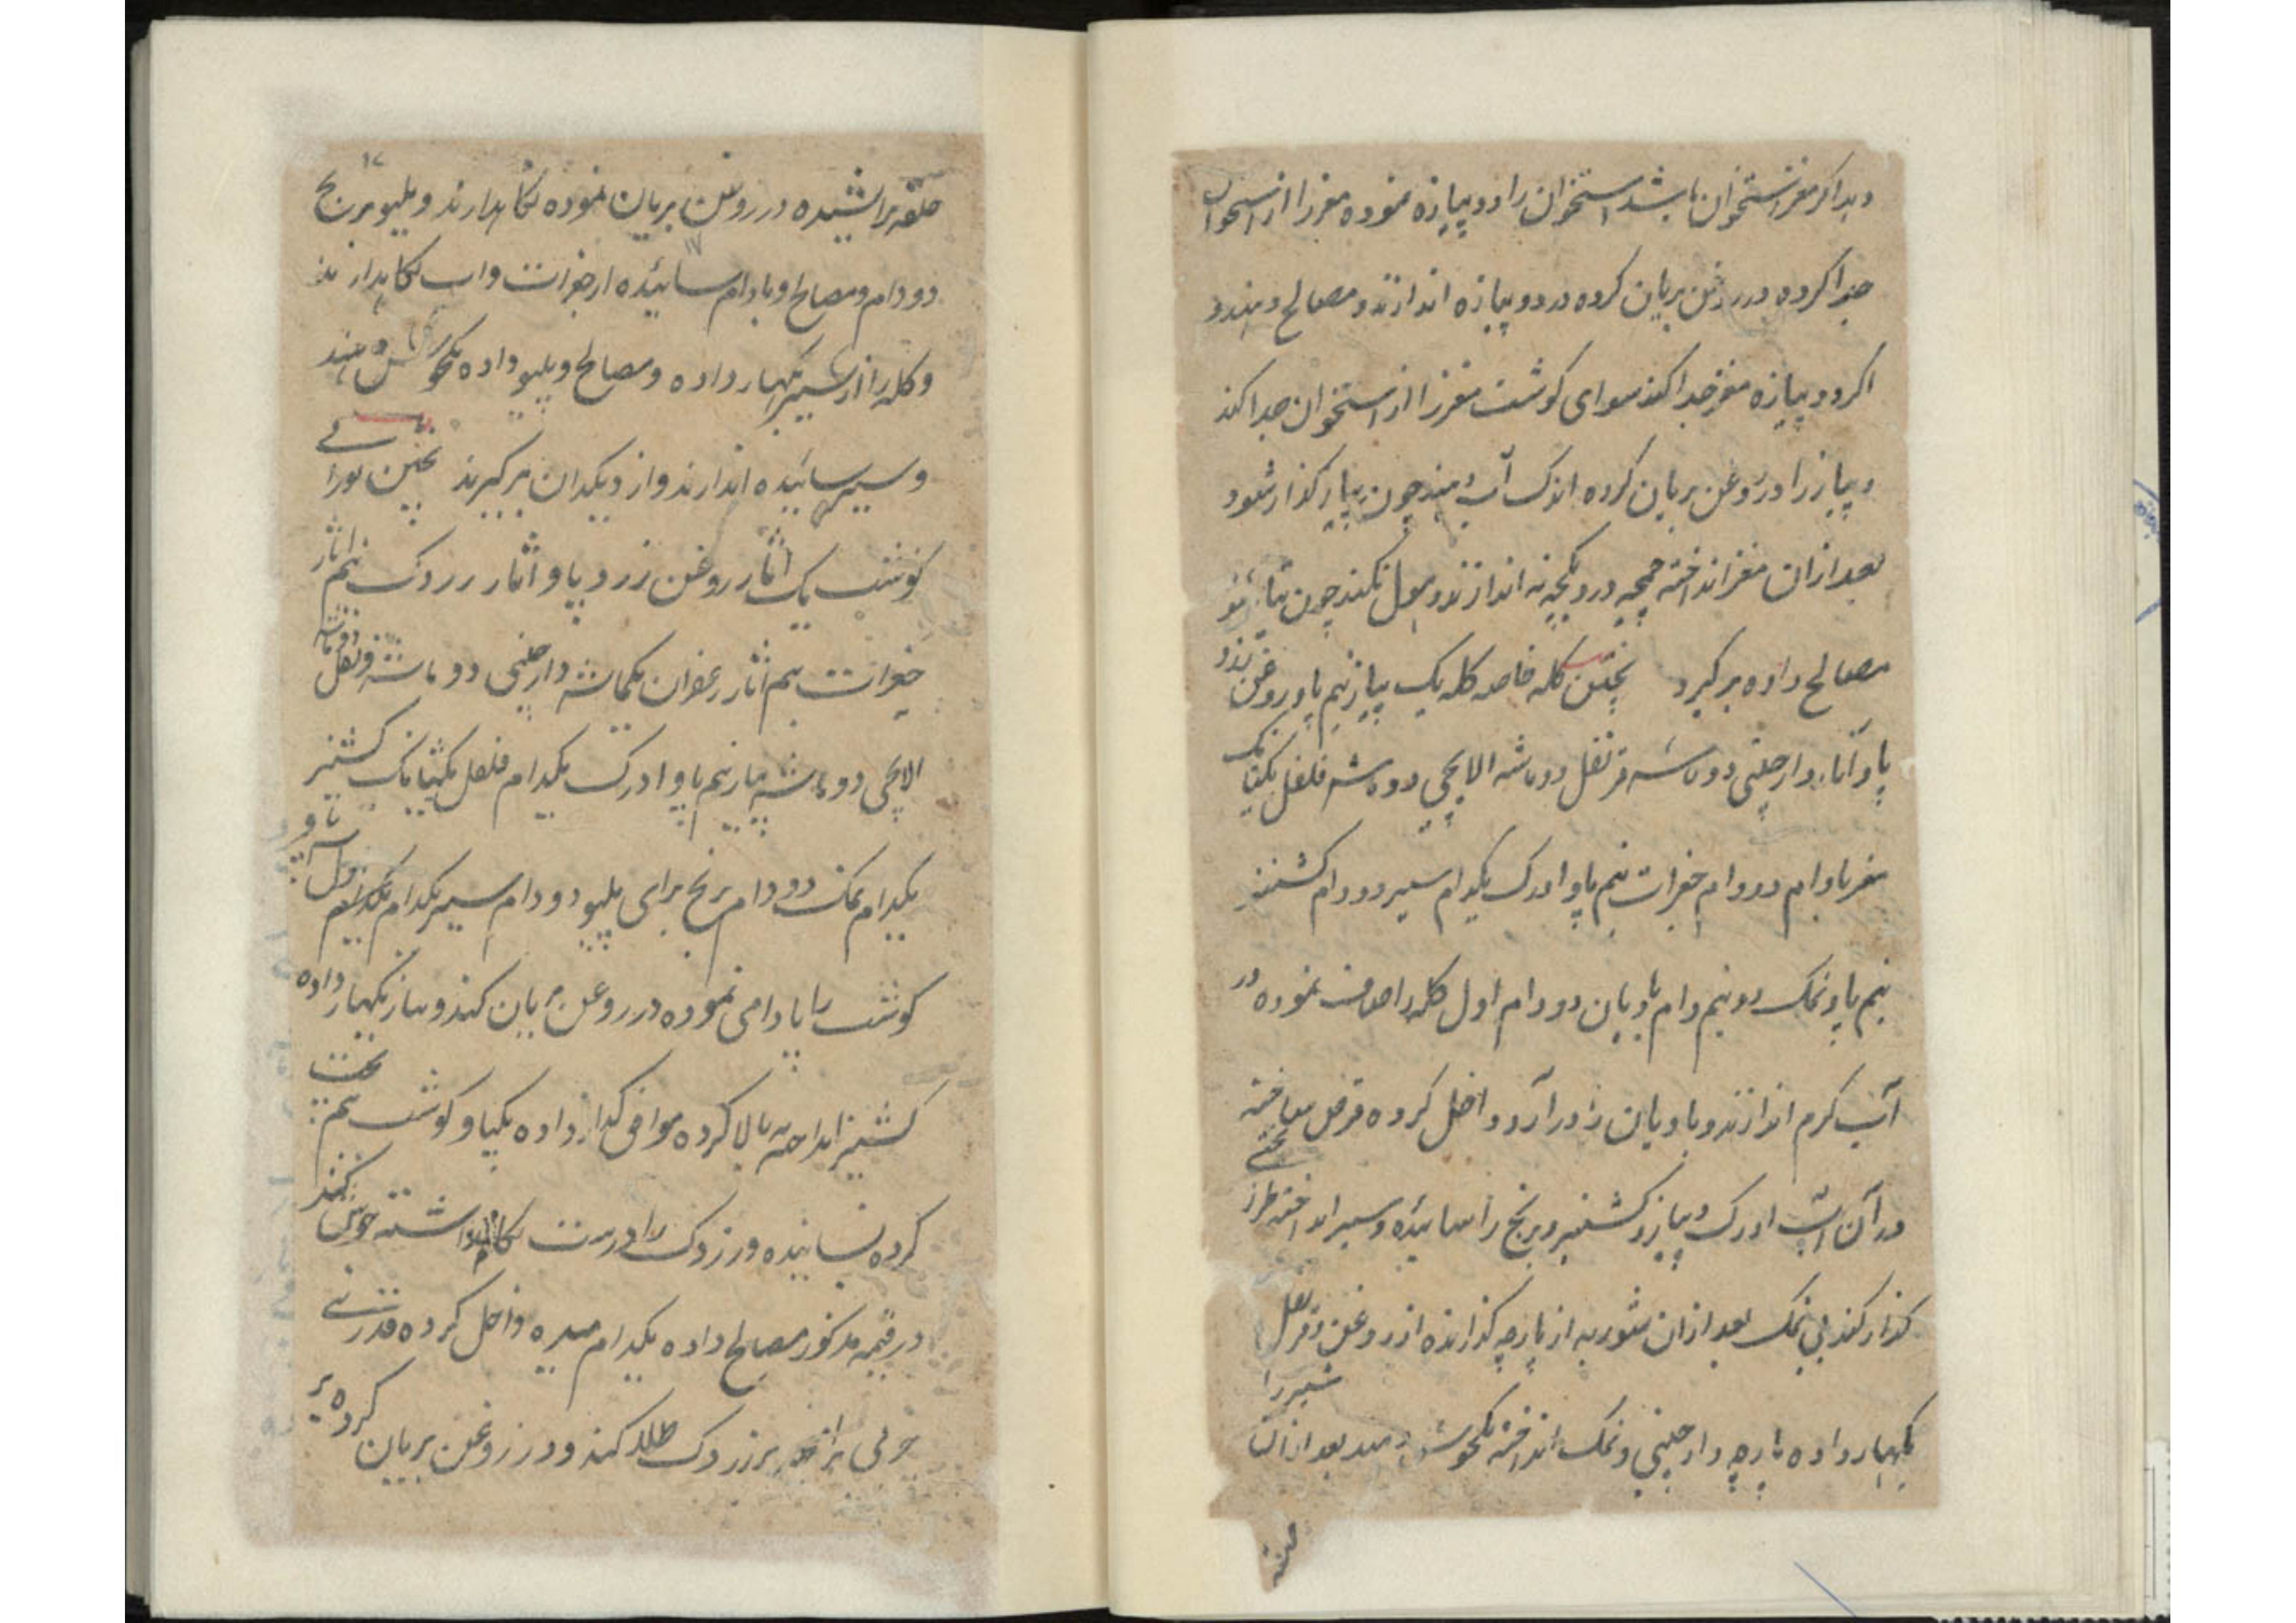 دهد اگر مغز استخوان باشد استخوان را دو پیازه نموده مغز را از استخوان
جدا کرده در روغن بریان کرده در دو پیازه اندازند و مصالح دهند و
اگر دو پیازه مغز جدا کند سوای گوشت مغز را از استخوان جدا کند
و پیاز را در روغن بریان کرده اندک آب دهند چون پیاز گذار شود
بعد از ان مغز انداخته چمچه در دیگچه نه اندازند و بهول نکند چون تیار شود
مصالح داده بر گیرد پختن کله خاصه کله یک پیاز نیم پاو روغن زرد
پاو آثار دارچینی دو ماشه قرنفل دو ماشه الایچی دو ماشه فلفل یکتانک
مغز بادام دو دام جغرات نیم پاو ادرک یکدام سیر دو دام کشنیز
نیم پاو نمک دو نیم دام بادیان دو دام اول کله را صاف نموده در
آب گرم اندازند و بادیان را در آرد داخل کرده قرص ساخته
در آن آب ادرک و پیاز و کشنیز و برنج را سائیده و سیر انداخته طرز یخنی
گذار کند بی نمک بعد از ان شوربه از پارچه گذارنده از روغن و قرنفل
بگهار داده پارچه دارچینی و نمک انداخته یکجوش دهند بعد از ان شیر را
۱۷
حلقه تراشیده در روغن بریان نموده نگاهدارند و پلیو برنج
دو دام و مصالح و بادام سائیده از جغرات و آب نگاهدارند
و کله را از سیر بگهار داده و مصالح و پلیو داده یکجوش دهند
و سیر سائیده اندازند و از دیگدان بر گیرند پختن بورانی
گوشت یک آثار روغن زرد پاو آثار زردک نیم آثار
جغرات نیم آثار زعفران یکماشه دارچینی دو ماشه قرنفل دو ماشه
الایچی دو ماشه پیاز نیم پاو ادرک یکدام فلفل یکتانک کشنیز
یکدام نمک دو دام برنج برای پلیو دو دام سیر یکدام یکنیم پاو اول
گوشت را بادامی نموده در روغن بریان کند و پیاز بگهار داده
کشنیز انداخته بالا کرده موافق گداز داده یکپاو گوشت نیم پخت
کرده بسانیده و زردک را درست نگاهداشته جوش کنند
در قیمه مذکور مصالح داده یکدام میده داخل کرده قدری
چربی بر زردک طلا کند و در روغن بریان کرده بر